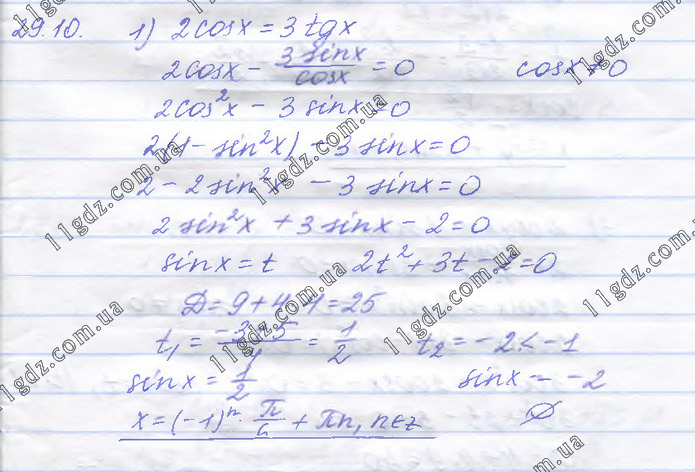 29.10. 1) 2cosx = 3tgx
2cosx - 3sinx/cosx = 0 cosx ≠ 0
2cos²x - 3sinx = 0
2(1 - sin²x) - 3sinx = 0
2 - 2sin²x - 3sinx = 0
2sin²x + 3sinx - 2 = 0
sinx = t 2t² + 3t - 2 = 0
D = 9 + 4·4 = 25
t₁ = (-3+5)/4 = 1/2 t₂ = -2 < -1
sinx = 1/2 sinx = -2
x = (-1)ⁿ · π/6 + πn, n∈Z ∅
11gdz.com.ua
11gdz.com.ua
11gdz.com.ua
11gdz.com.ua
11gdz.com.ua
11gdz.com.ua
11gdz.com.ua